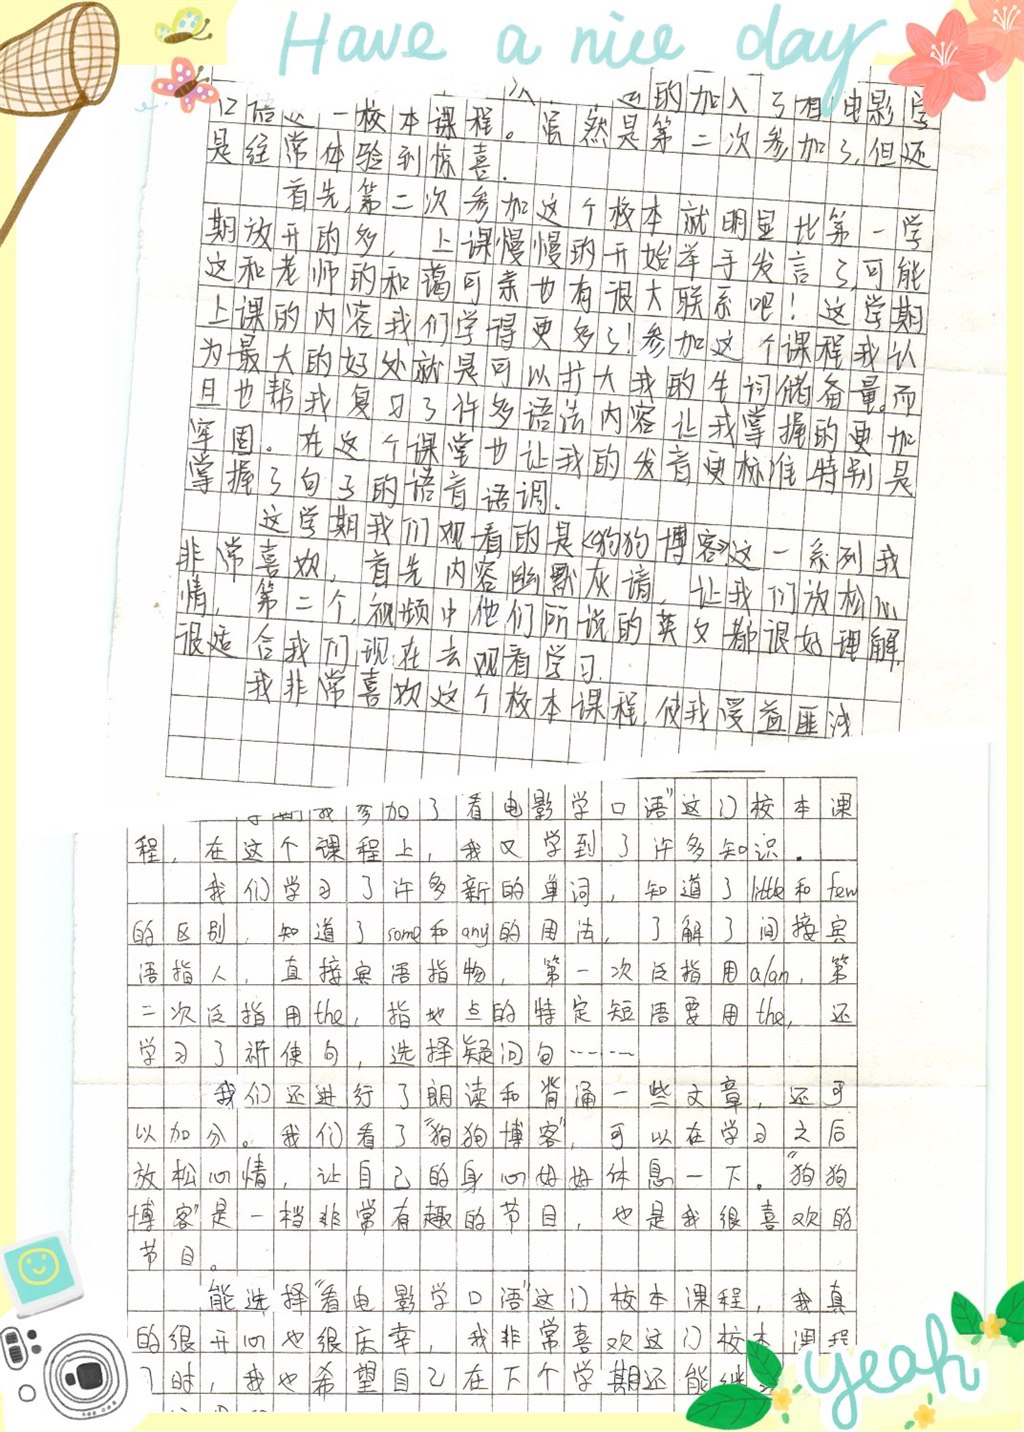 Have a nice day
的加入了看电影学
口语这一校本课程。虽然是第二次参加了,但还
是经常体验到惊喜.
首先,第二次参加这个校本就明显比第一学
期放开的多,上课慢慢的开始举手发言了,可能
这和老师的和蔼可亲也有很大联系吧!这学期
上课的内容我们学得更多了!参加这个课程我认
为最大的好处就是可以扩大我的生词储备量。而
且也帮我复习了许多语法内容让我掌握的更加
牢固。在这个课堂也让我的发音更标准特别是
掌握了句子的语音语调.
这学期我们观看的是《狗狗博客》这一系列我
非常喜欢,首先内容幽默灰谐,让我们放松心
情,第二个,视频中他们所说的英文都很好理解
很适合我们现在去观看学习.
我非常喜欢这个校本课程,使我受益匪浅
我参加了看电影学口语"这门校本课
程,在这个课程上,我又学到了许多知识.
我们学习了许多新的单词,知道了little和few
的区别,知道了some和any的用法,了解了间接宾
语指人,直接宾语指物,第一次泛指用a/an,第
二次泛指用the,指地点的特定短语要用the,还
学习了祈使句,选择疑问句……
我们还进行了朗读和背诵一些文章,还可
以加分。我们看了"狗狗博客",可以在学习之后
放松心情,让自己的身心好好休息一下."狗狗
博客"是一档非常有趣的节目,也是我很喜欢的
节目。
能选择"看电影学口语"这门校本课程,我真
的很开心也很庆幸,我非常喜欢这门校本课程
时,我也希望自己在下个学期还能继
yeah